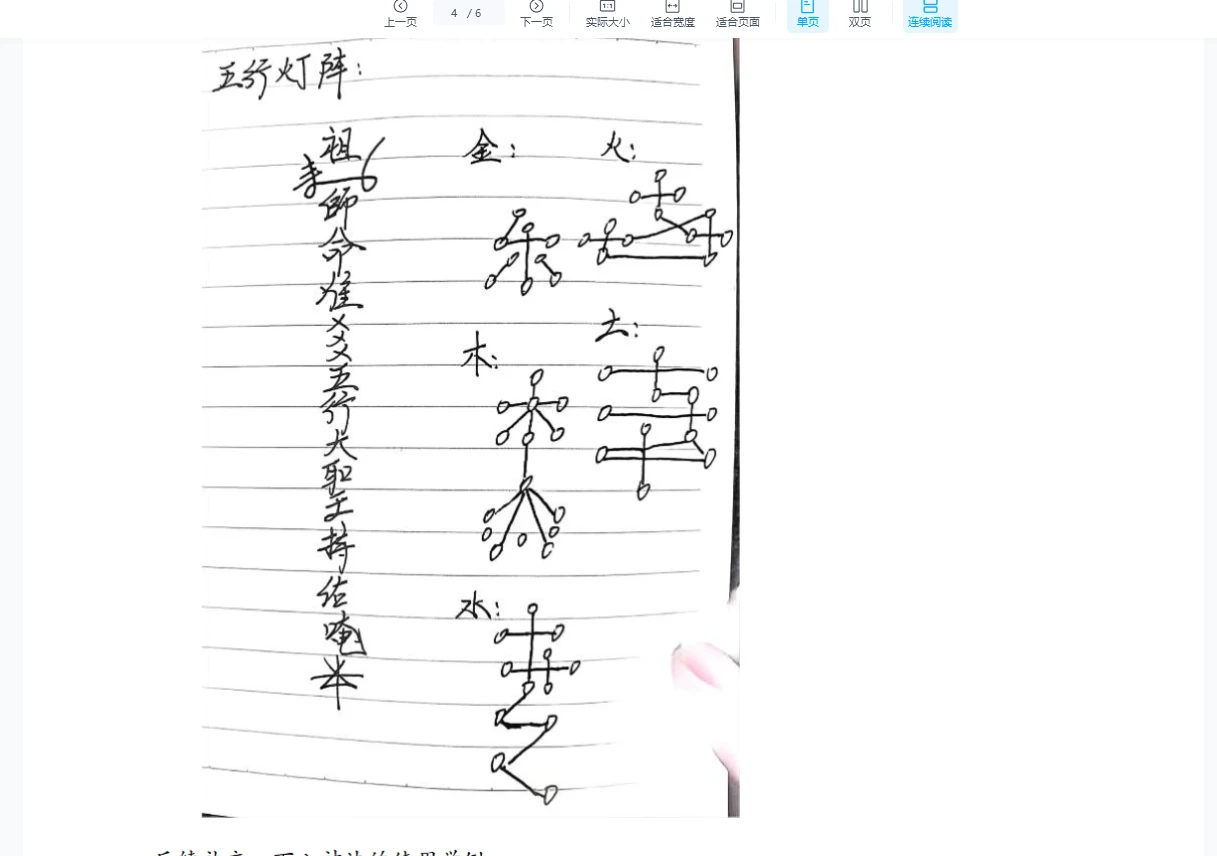 上一页
4 / 6
下一页
1:1
实际大小
适合宽度
适合页面
单页
双页
连续阅读
五行灯阵：
祖
師
命
准
五
行
大
聖
王
持
佑
唵
金：
火：
木：
土：
水：